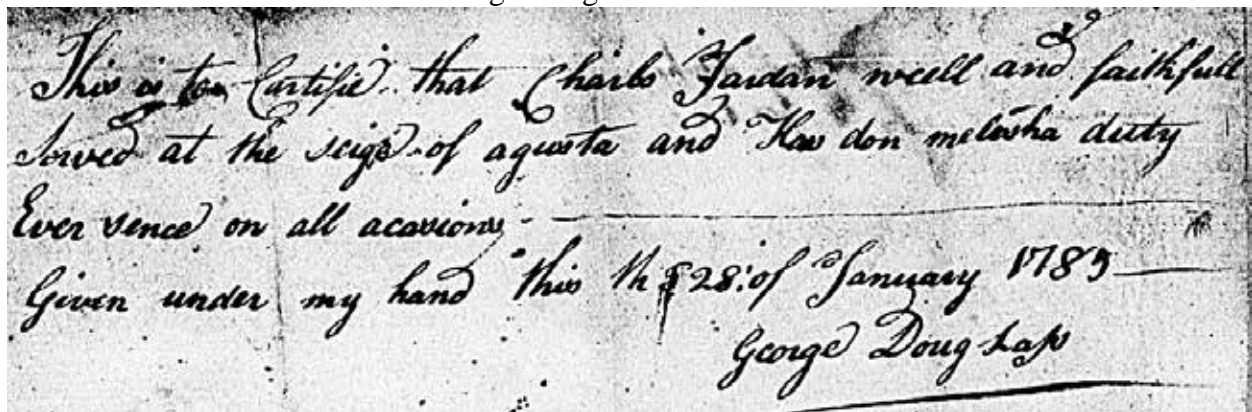 This is to Cartifie that Charls Jardan weell and faithfull
Sarved at the seige of agusta and Has don melisha duty
Ever sence on all acasions
Given under my hand this th 28: of January 178
George Douglass